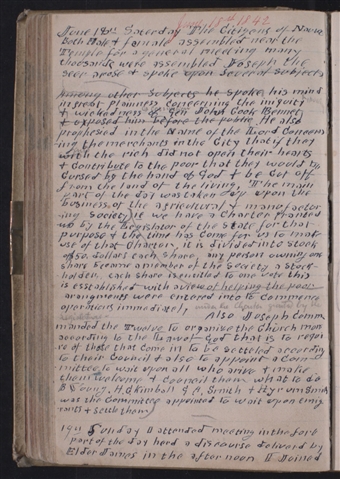 June 18th 1842
June 18th Saturday The Citizens of Nauvoo
Both Male & female assembled near the
Temple for a general meeting many
thousands were assembled Joseph the
Seer arose & spoke upon several subjects
Among other subjects he spoke his mind
in great plainness concerning the iniquity
& wickedness of Gen John Cook Bennet
& exposed him before the public He also
prophesied in the Name of the Lord Concern
ing the merchants in the City that if they
with the rich did not open their hearts
& contribute to the poor that they would be
Cursed by the hand of God & be cut off
from the land of the living The main
part of the day was taken up upon the
business of the agricultural & manufactor
ing Society we have a Charter granted
us by the legislator of the State for that
purpose & the time has come for us to make
use of that Charter, it is divided into stock
of 50 dollars each share, any person owning one
share became a member of the Society a stock
holder, each share is entitled to one vote this
is established with a view of helping the poor
arangments were entered into to commence
operations immediately,
Also Joseph Comm
manded the Twelve to organize the Church more
according to the Law of God that is to requi
re of those that come in to be settled according
to their Council & also to appoint a Com
mittee to wait upon all who arrive & make
them welcome & council them what to do
B Young, H C Kimball G A Smith & Hyrum Smith
was the Committee appointed to wait upon emig
rants & settle them
19th Sunday I attended meeting in the fore
part of the day herd a discourse deliverd by
Elder in the afternoon I Joined